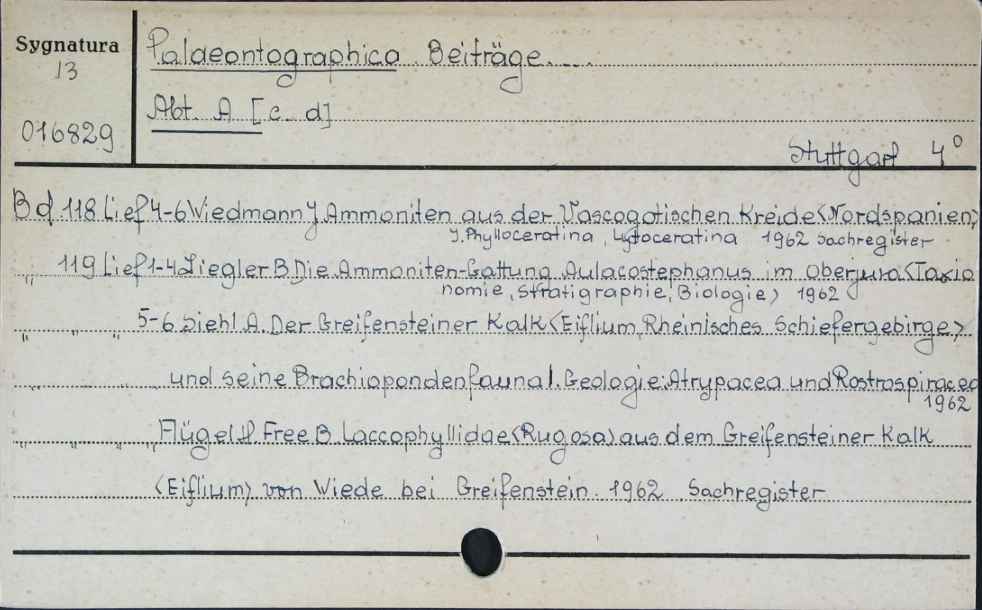 Sygnatura
13
016829
Palaeontographica. Beiträge....
Abt. A [c. d]
Stuttgart 4°
Bd. 118 Lief 4-6 Wiedmann J. Ammoniten aus der Vascogotischen Kreide <Nordspanien>
I. Phylloceratina, Lytoceratina 1962 Sachregister
" 119 Lief 1-4 Ziegler B Die Ammoniten-Gattung Aulacostephanus im Oberjura <Taxio
nomie, Stratigraphie, Biologie> 1962
" " " 5-6 Siehl A. Der Greifensteiner Kalk <Eiflium, Rheinisches Schiefergebirge>
und seine Brachiopondenfauna I. Geologie: Atrypacea und Rostrospiracea
1962
" " " Flügel H. Free B. Laccophyllidae <Rugosa> aus dem Greifensteiner Kalk
<Eiflium> von Wiede bei Greifenstein. 1962 Sachregister